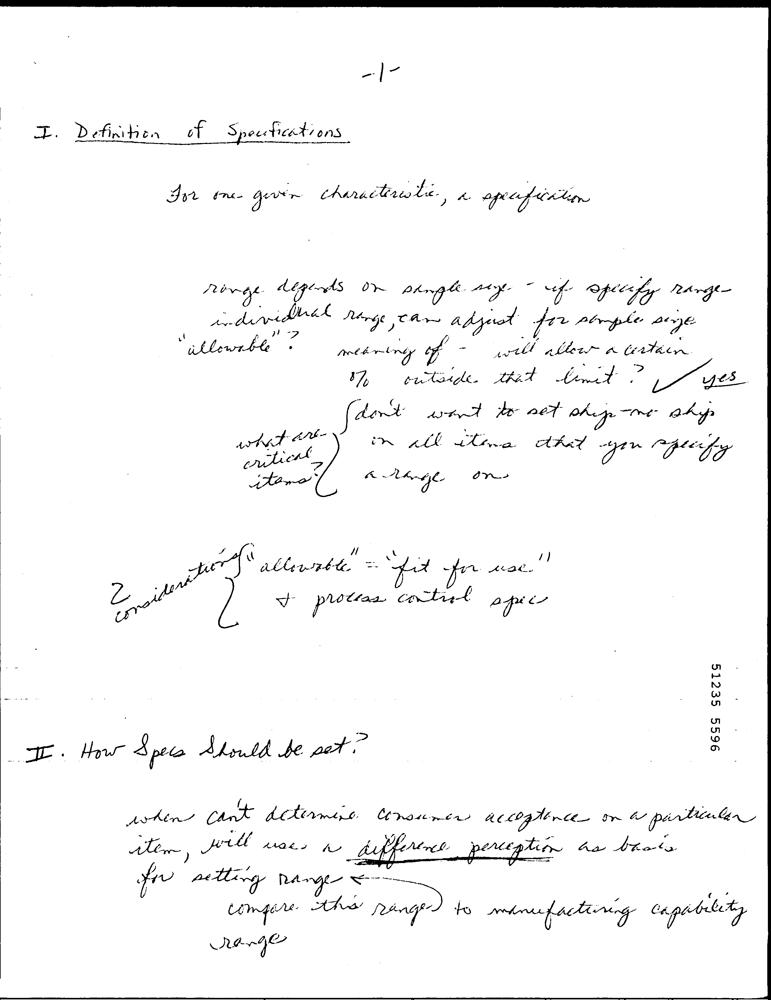 -1-
I. Definition of Specifications
For one given characteristic, a specification
range depends on sample size - if specify range
individual range, can adjust for sample size
"allowable"? meaning of - will allow a certain
% outside that limit? ✓ yes
don't want to set ship-no ship
what are critical items? in all items that you specify
a range on
2 considerations "allowable" = "fit for use"
+ process control spec
51235 5596
II. How Specs Should be set?
when can't determine consumer acceptance on a particular
item, will use a difference perception as basis
for setting range ←
compare this range to manufacturing capability
range